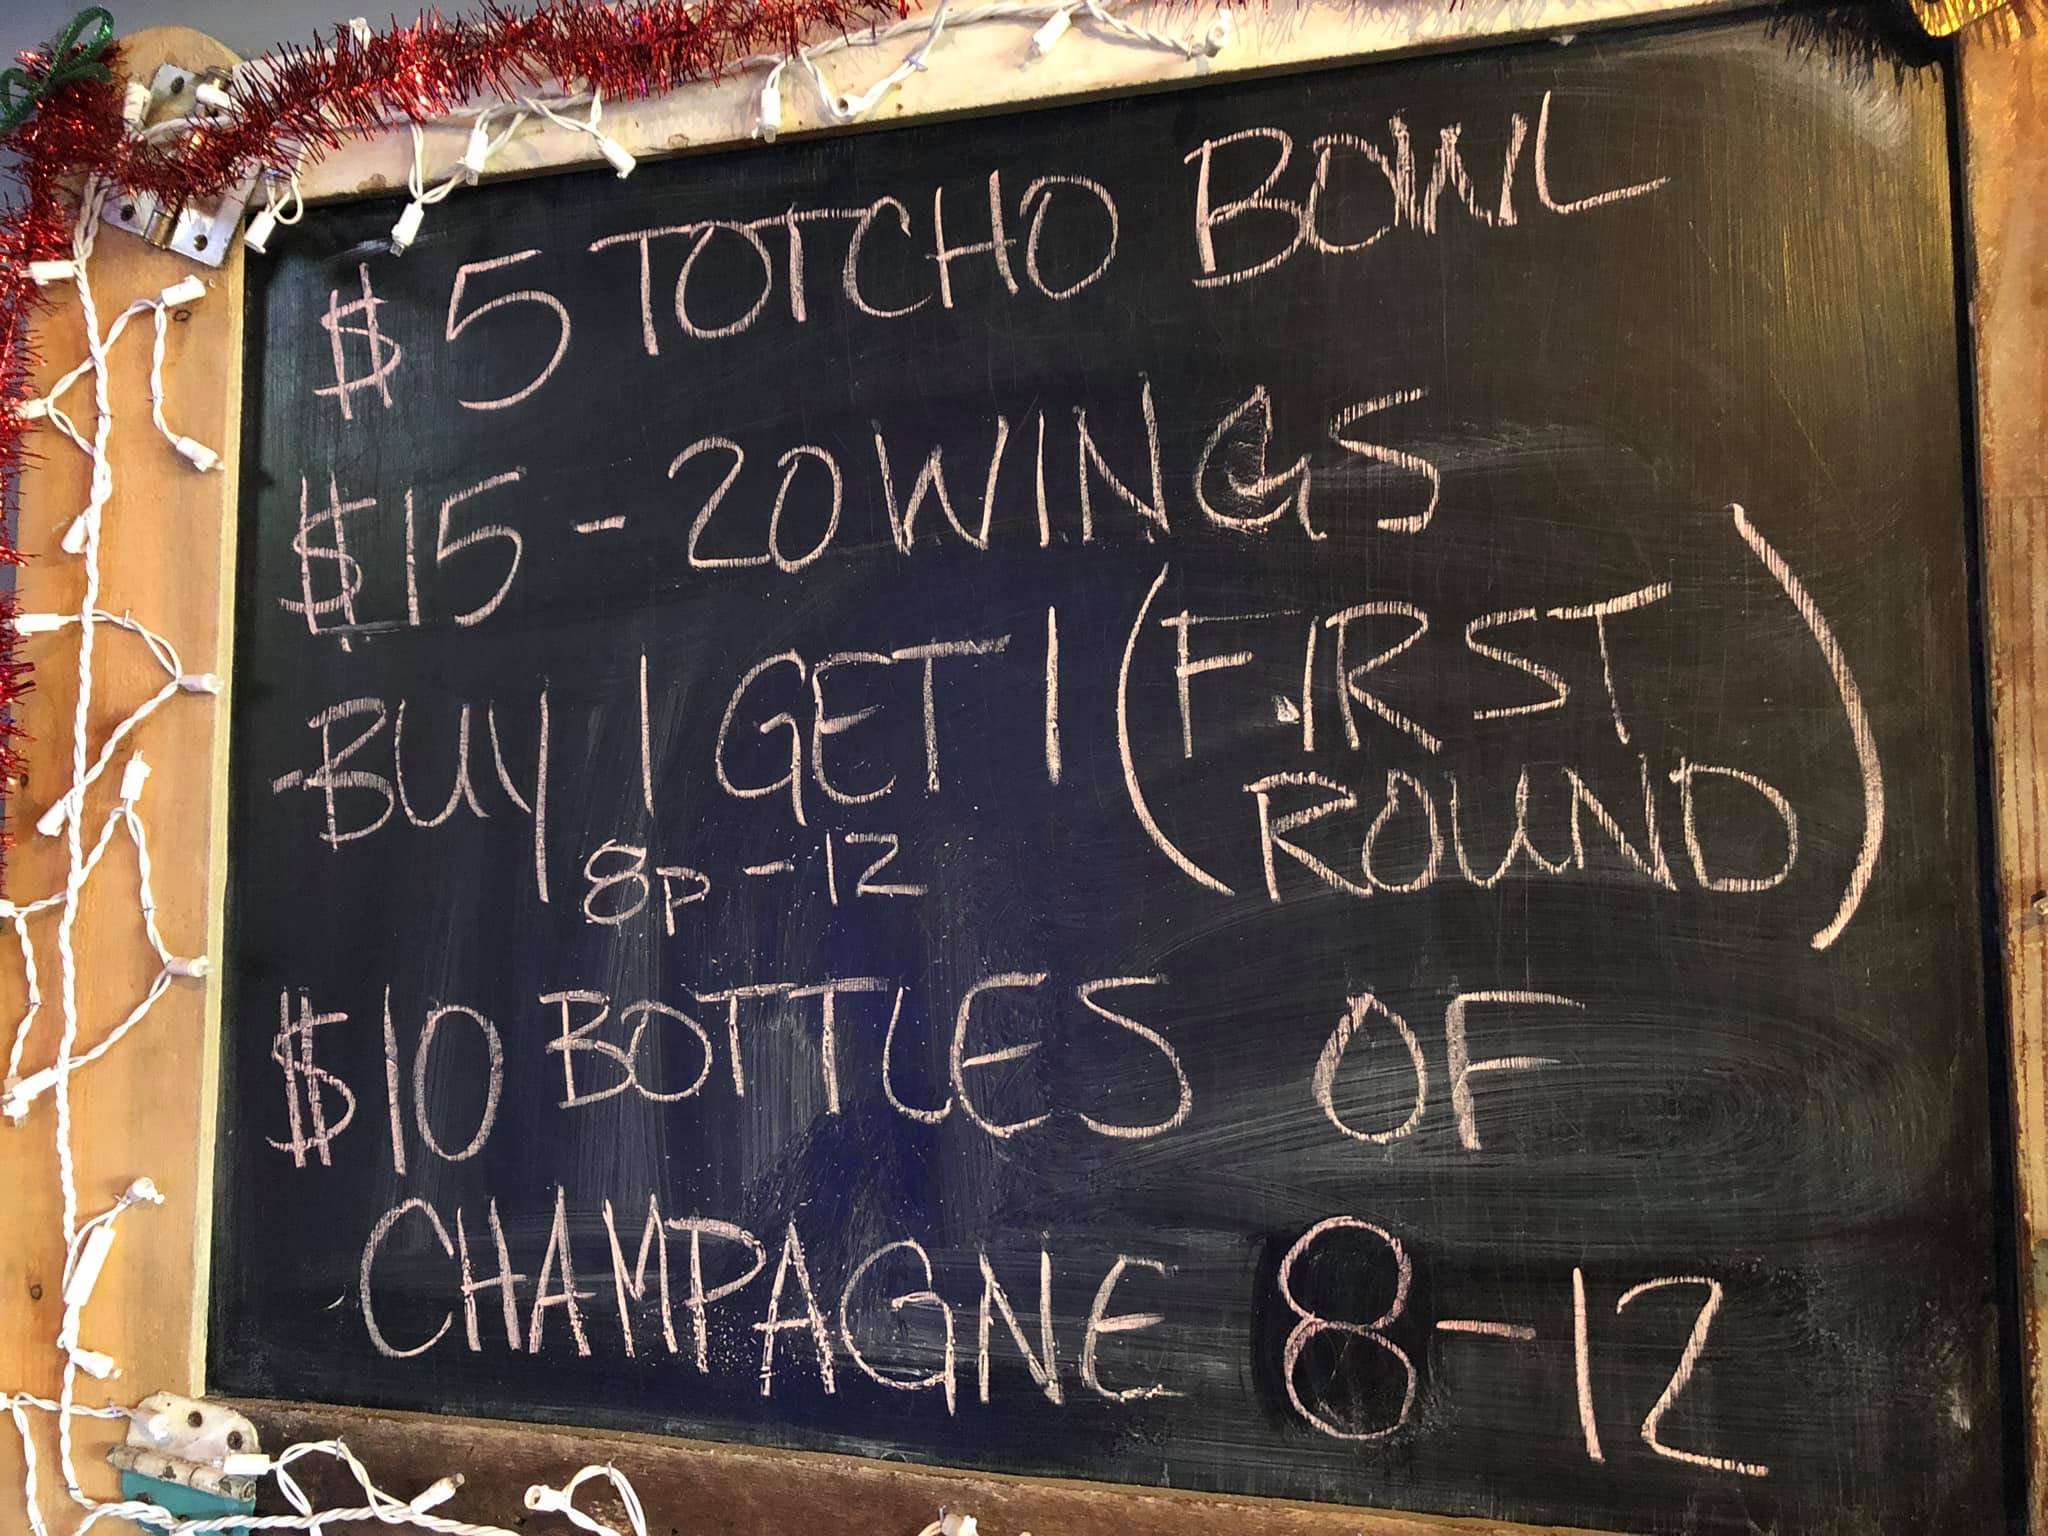 $5 TOTCHO BOWL
$15 - 20 WINGS
BUY 1 GET 1 (FIRST ROUND)
8P - 12
$10 BOTTLES OF
CHAMPAGNE 8-12